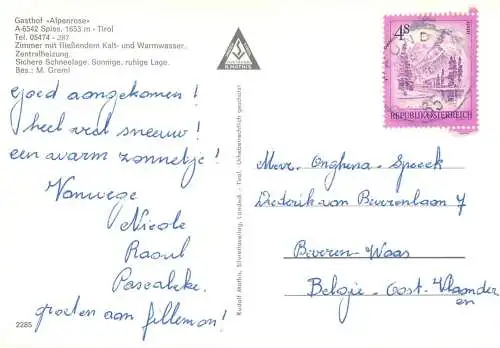 Gasthof «Alpenrose»
A-6542 Spiss, 1653 m - Tirol
Tel. 05474 - 287
Zimmer mit fließendem Kalt- und Warmwasser.
Zentralheizung.
Sichere Schneelage. Sonnige, ruhige Lage.
Bes.: M. Greml
R. MATHIS
goed aangekomen!
heel veel sneeuw!
een warm zonnetje!
Vanwege
Nicole
Raoul
Pascaleke.
groeten aan fillemon!
2285
Rudolf Mathis, Silvrettaverlag, Landeck - Tirol. Urheberrechtlich geschützt
4 S
REPUBLIK ÖSTERREICH
Mevr. Onghena-Speeck
Diederik van Beverenlaan 7
Beveren-Waas
België - Oost-Vlaander
en